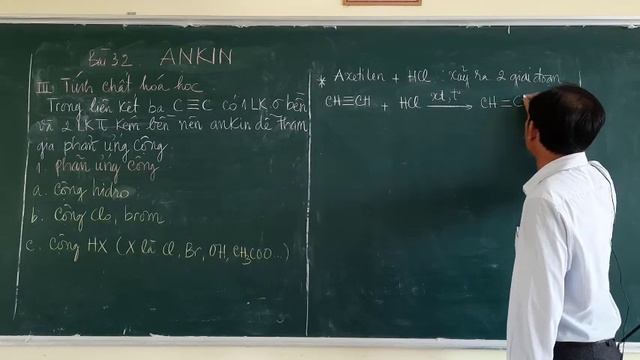 Bài 32 ANKIN
III. Tính chất hóa học.
Trong liên kết ba C≡C có 1 LK σ bền
và 2 LK π kém bền nên ankin dễ tham
gia phản ứng cộng.
1. phản ứng cộng
a. Cộng hidro
b. Cộng clo, brom
c. Cộng HX (X là Cl, Br, OH, CH₃COO...)
* Axetilen + HCl : Xảy ra 2 giai đoạn
CH≡CH + HCl xt, t° → CH=C